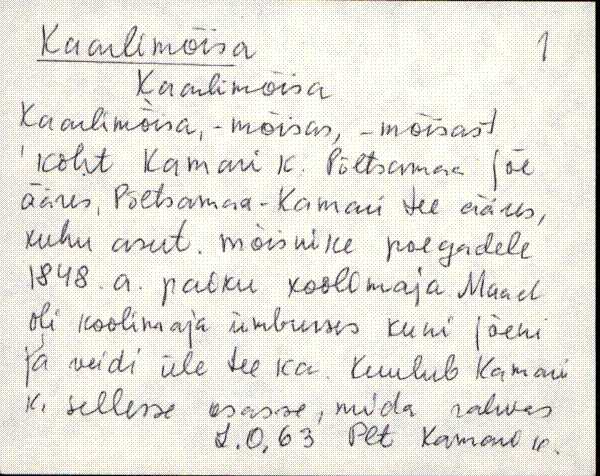 Kaarlimõisa 1
Kaarlimõisa
Kaarlimõisa, -mõisas, -mõisast
'koht Kamari k. Põltsamaa jõe
ääres, Põltsamaa-Kamari tee ääres,
kuhu asut. mõisnike poegadele
1848. a. paiku koolimaja. Maad
oli koolimaja ümbruses kuni jõeni
ja veidi üle tee ka. Kuulub Kamari
k. sellesse osasse, mida rahvas
L.O, 63 Plt Kamari k.